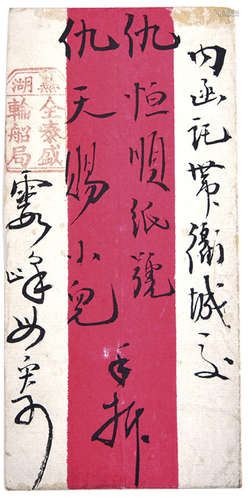 內函託帶衢城交
仇恒順紙號
仇天賜小兒 手拆
全泰盛
湖輪船局
霞峰